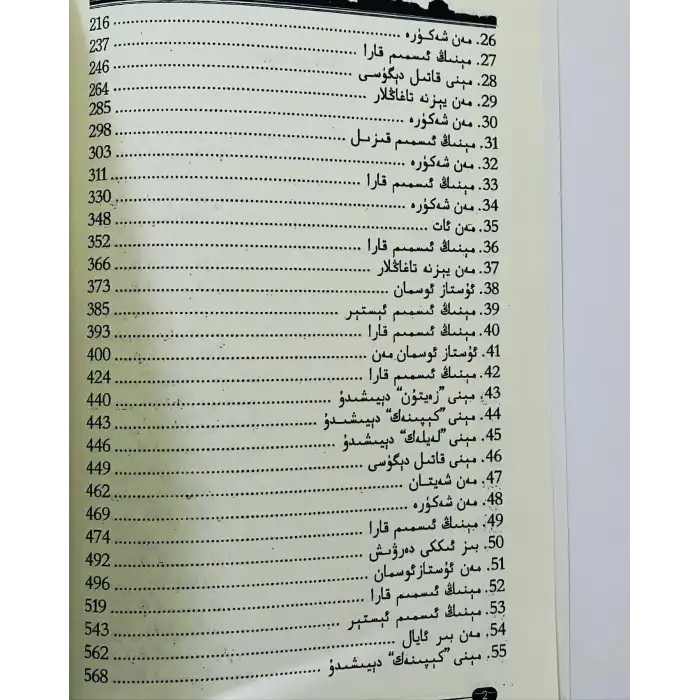 26. مەن شەكۈرە ........ 216
27. مېنىڭ ئىسمىم قارا ........ 237
28. مېنى قاتىل دېگۈسى ........ 246
29. مەن يېزنە تاغاڭلار ........ 264
30. مەن شەكۈرە ........ 285
31. مېنىڭ ئىسمىم قىزىل ........ 298
32. مەن شەكۈرە ........ 303
33. مېنىڭ ئىسمىم قارا ........ 311
34. مەن شەكۈرە ........ 330
35. مەن ئات ........ 348
36. مېنىڭ ئىسمىم قارا ........ 352
37. مەن يېزنە تاغاڭلار ........ 366
38. ئۇستاز ئوسمان ........ 373
39. مېنىڭ ئىسمىم ئېستېر ........ 385
40. مېنىڭ ئىسمىم قارا ........ 393
41. ئۇستاز ئوسمان مەن ........ 400
42. مېنىڭ ئىسمىم قارا ........ 424
43. مېنى "زەيتۇن" دېيىشىدۇ ........ 440
44. مېنى "كېپىنەك" دېيىشىدۇ ........ 443
45. مېنى "لەيلەك" دېيىشىدۇ ........ 446
46. مېنى قاتىل دېگۈسى ........ 449
47. مەن شەيتان ........ 462
48. مەن شەكۈرە ........ 469
49. مېنىڭ ئىسمىم قارا ........ 474
50. بىز ئىككى دەرۋىش ........ 492
51. مەن ئۇستازئوسمان ........ 496
52. مېنىڭ ئىسمىم قارا ........ 519
53. مېنىڭ ئىسمىم ئېستېر ........ 543
54. مەن بىر ئايال ........ 562
55. مېنى "كېپىنەك" دېيىشىدۇ ........ 568
2